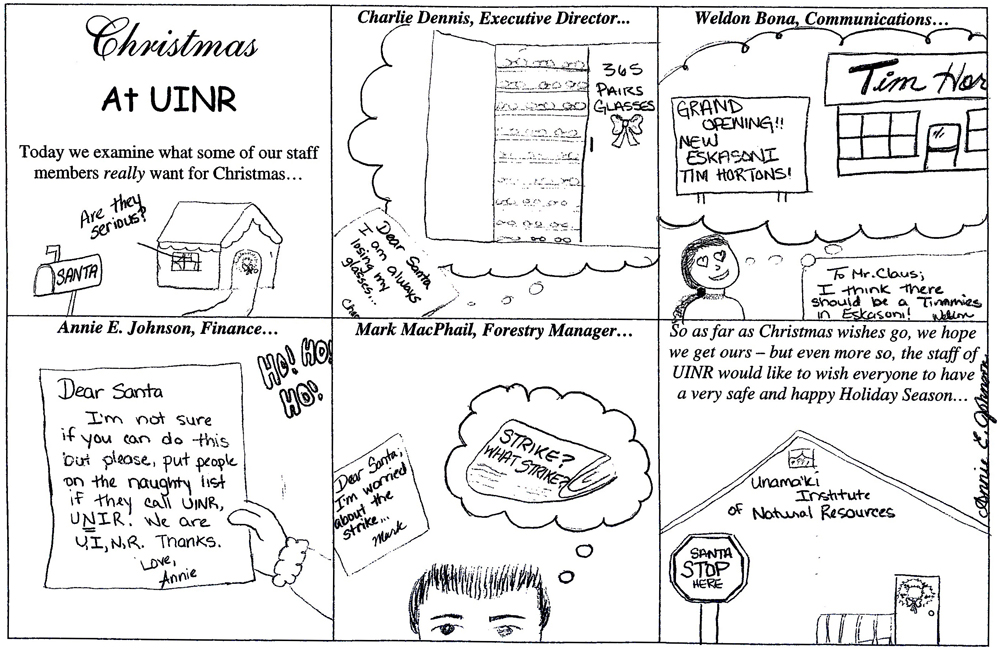 Christmas
At UINR
Today we examine what some of our staff
members really want for Christmas…
Are they
serious?
SANTA
Charlie Dennis, Executive Director...
365
PAIRS
GLASSES
Dear Santa
I am always
losing my
glasses...
Weldon Bona, Communications…
Tim Hor
GRAND
OPENING!!
NEW
ESKASONI
TIM HORTONS!
To Mr. Claus;
I think there
should be a Timmies
in Eskasoni! Weldon
Annie E. Johnson, Finance…
HO! HO!
HO!
Dear Santa
I'm not sure
if you can do this
but please, put people
on the naughty list
if they call UINR,
UNIR. We are
U,I,N,R. Thanks.
Love,
Annie
Mark MacPhail, Forestry Manager…
Dear Santa,
I'm worried
about the
strike...
Mark
STRIKE?
WHAT STRIKE?
So as far as Christmas wishes go, we hope
we get ours – but even more so, the staff of
UINR would like to wish everyone to have
a very safe and happy Holiday Season…
Unama'ki
Institute
of Natural Resources
SANTA
STOP
HERE
Annie E. Johnson